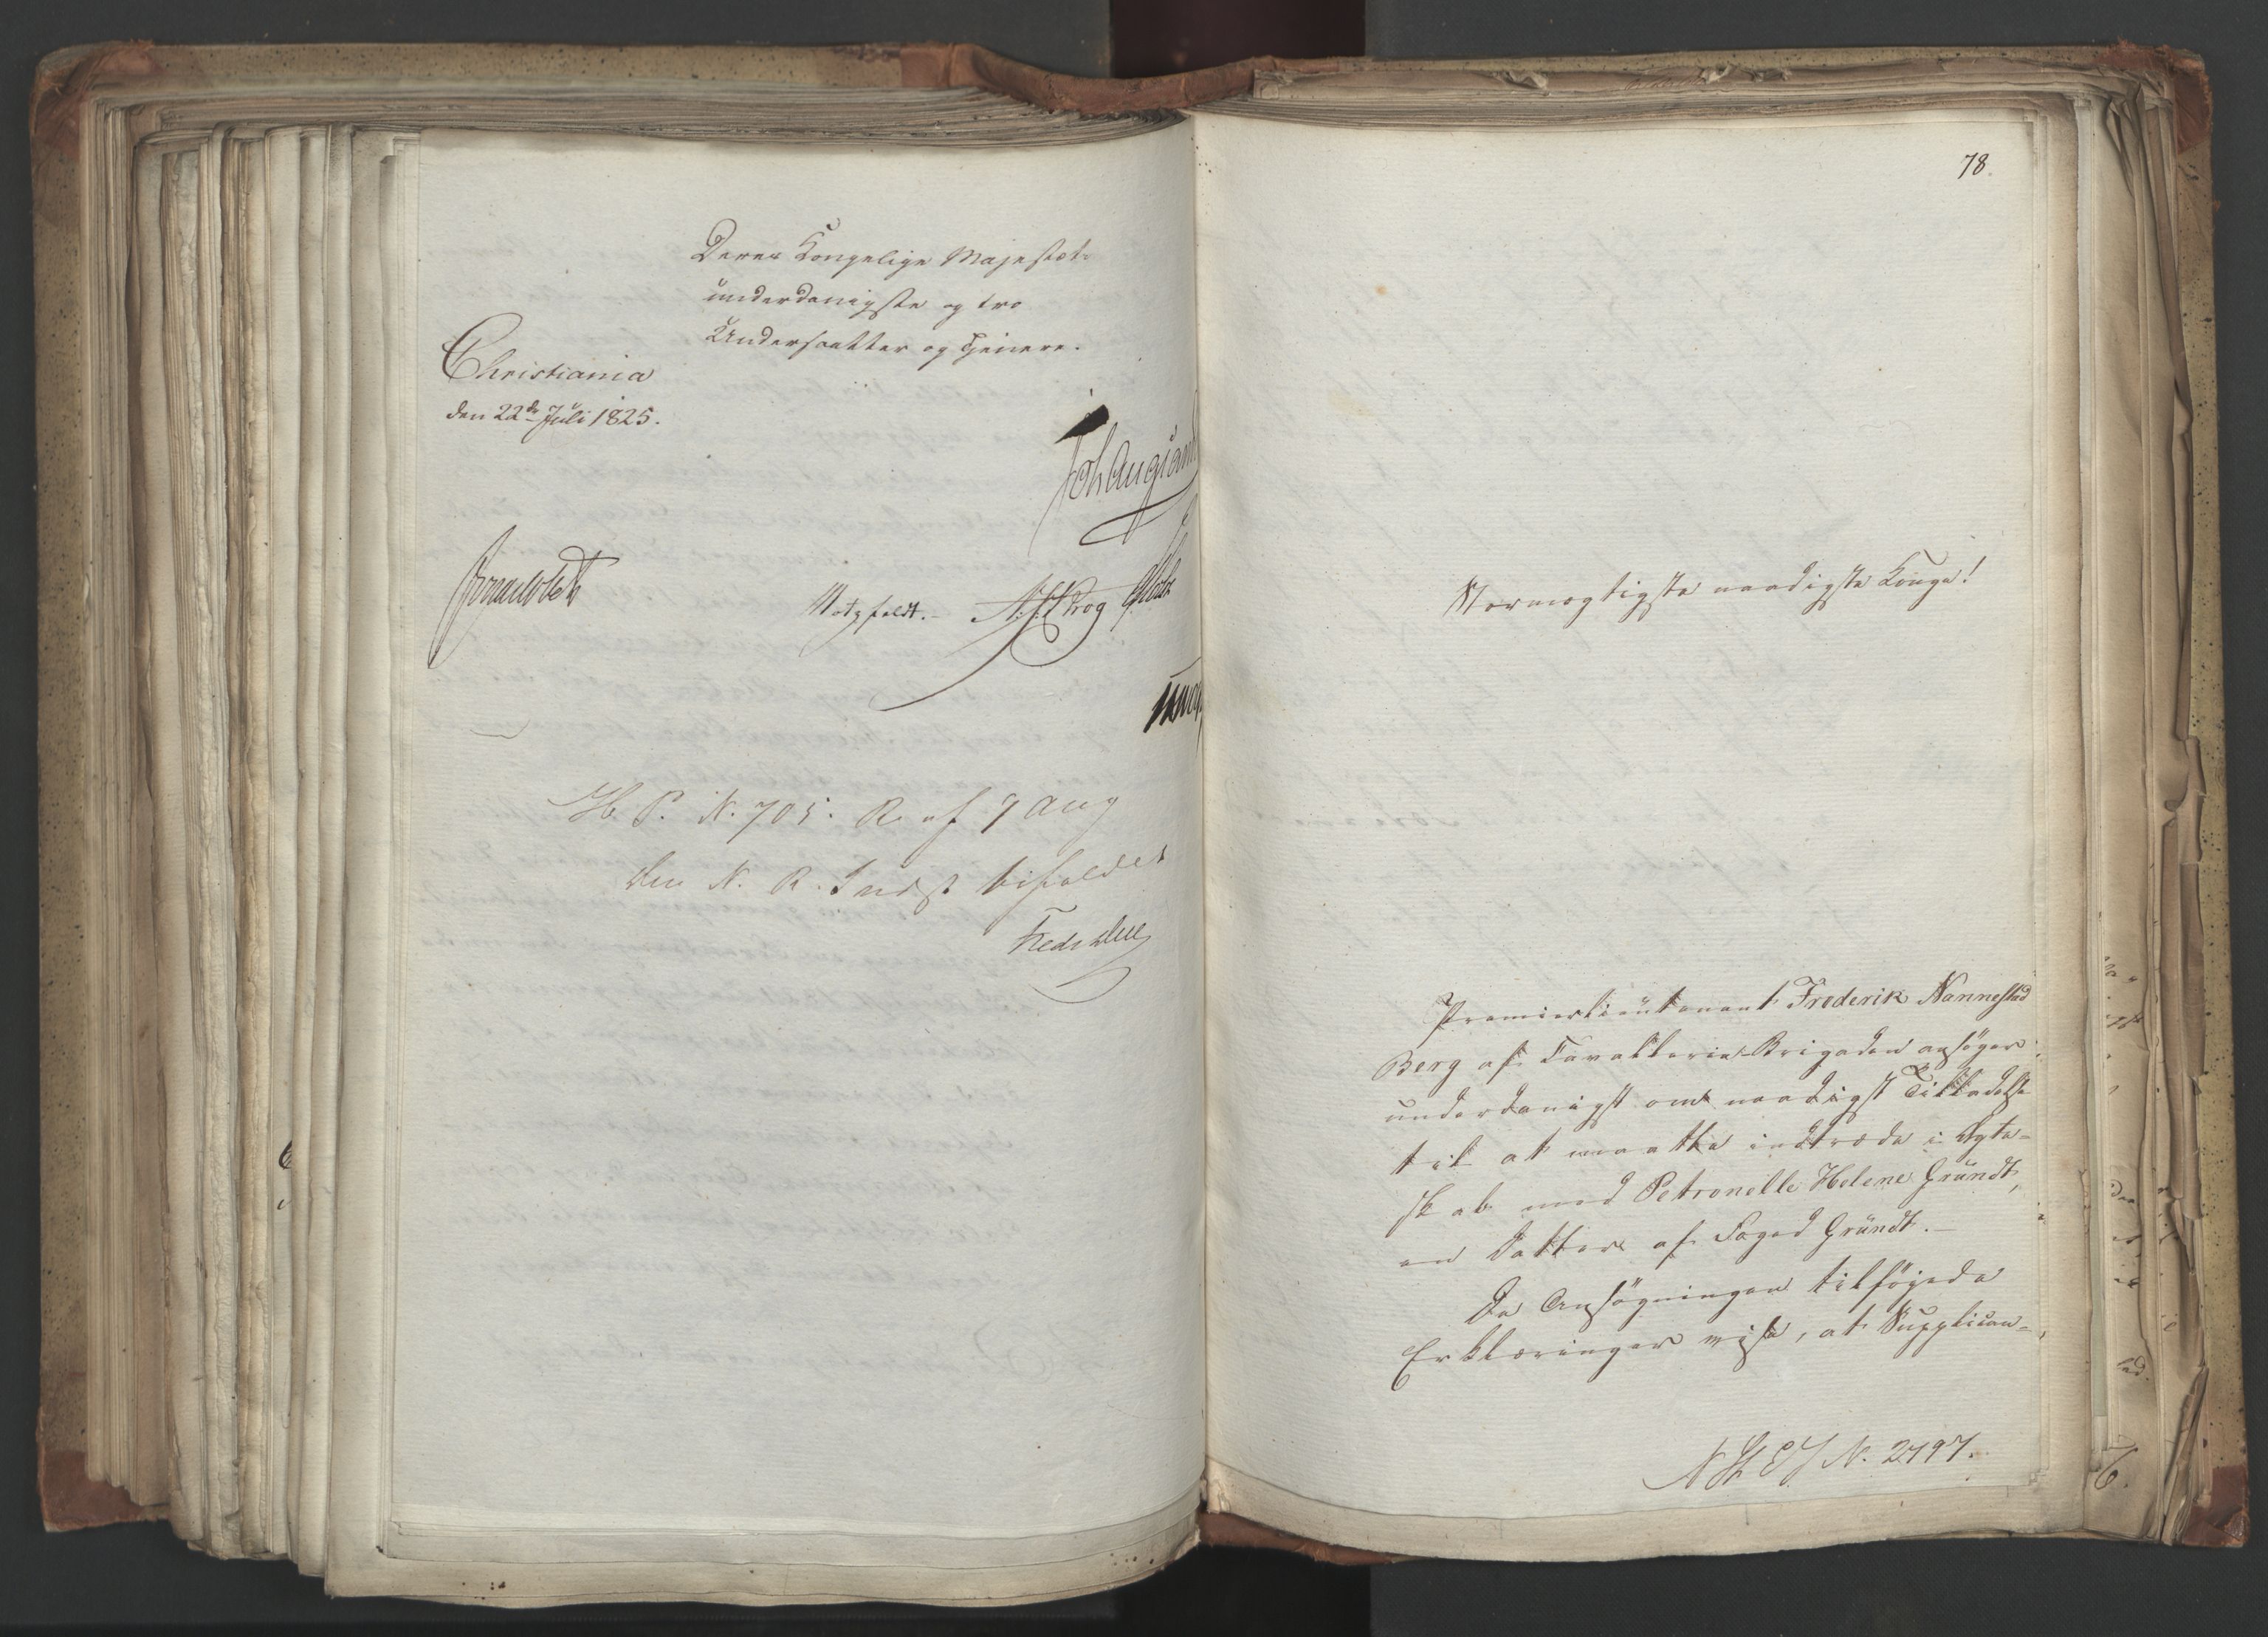 Deres Kongelige Majestæts
underdanigste og tro
Undersaatter og Tjenere.
Christiania
den 22de Juli 1825.
Motzfeldt. Krog
H. P. N. 705. R. af 9 Aug
den N. R. Indst bifaldes
Fredr Due
78.
Stormægtigste naadigste Konge!
Premierlieutenant Frederik Nannestad
Berg af Cavallerie-Brigaden ansøger
underdanigst om naadigst Tilladelse
til at maatte indtræde i Ægte-
skab med Petronelle Helene Gründt,
en Datter af Foged Gründt.
De Ansøgningen tilføjede
Erklæringer vise, at Supplican-
N. 2797.